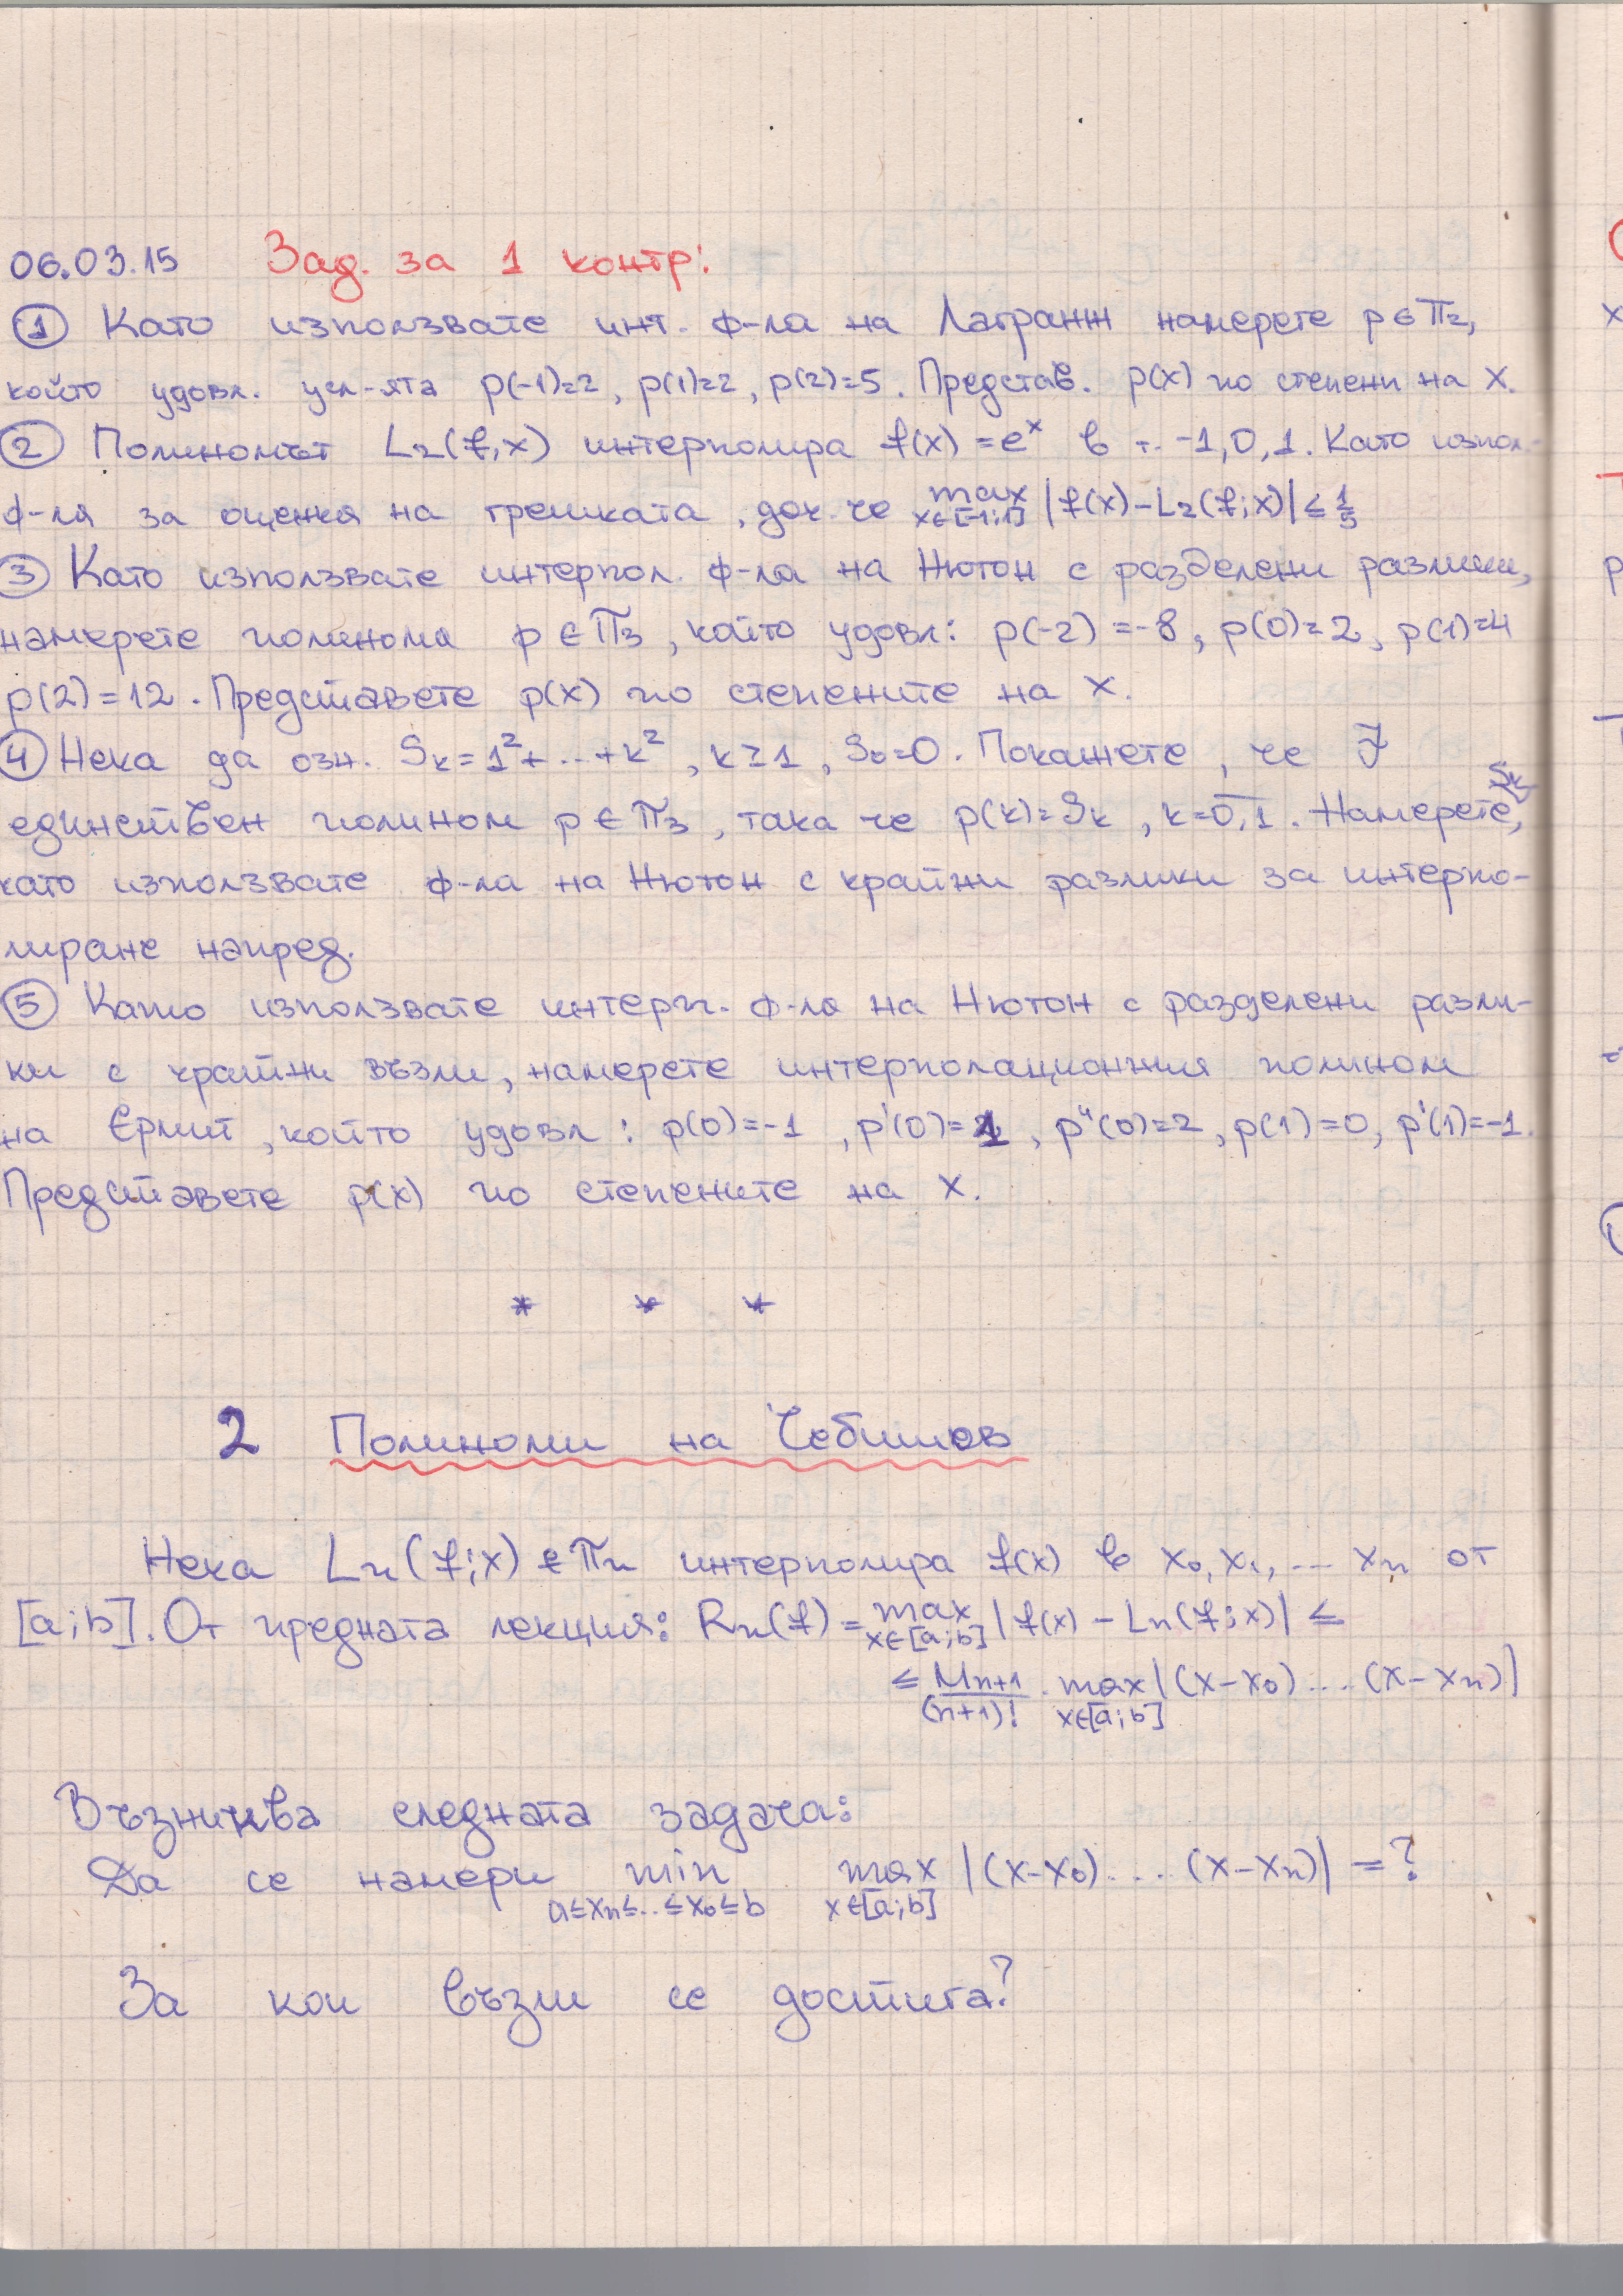 06.03.15 Зад. за 1 контр:
① Като използвате инт. ф-ла на Лагранж намерете p ∈ π₂,
който удовл. усл-ята p(-1)=2, p(1)=2, p(2)=5. Представ. p(x) по степени на x.
② Полиномът L₂(f,x) интерполира f(x) = eˣ в т. -1,0,1. Като изпол-
ф-ля за оценка на грешката, док. че max x∈[-1;1] |f(x)-L₂(f;x)| ≤ 1/5
③ Като използвате интерпол. ф-ла на Нютон с разделени разлики,
намерете полинома p ∈ π₃, който удовл: p(-2)=-8, p(0)=2, p(1)=4
p(2)=12. Представете p(x) по степените на x.
④ Нека да озн. Sₖ=1²+...+k², k≥1, S₀=0. Покажете, че ∃
единствен полином p ∈ π₃, така че p(k)=Sₖ, k=0,1. Намерете Sₖ,
като използвате ф-ла на Нютон с крайни разлики за интерпо-
лиране напред.
⑤ Като използвате интерп. ф-ла на Нютон с разделени разли-
ки с крайни възли, намерете интерполационния полином
на Ермит, който удовл: p(0)=-1, p'(0)=1, p"(0)=2, p(1)=0, p'(1)=-1.
Представете p(x) по степените на x.
* * *
2 Полиноми на Чебишов
Нека Lₙ(f;x) ∈ πₙ интерполира f(x) в x₀,x₁,... xₙ от
[a;b]. От предната лекция: Rₙ(f) = max x∈[a;b] |f(x) - Lₙ(f;x)| ≤
≤ Mₙ₊₁/(n+1)! . max x∈[a;b] |(x-x₀)...(x-xₙ)|
Възниква следната задача:
Да се намери min a≤xₙ≤..≤x₀≤b max x∈[a;b] |(x-x₀)...(x-xₙ)| = ?
За кои възли се достига?